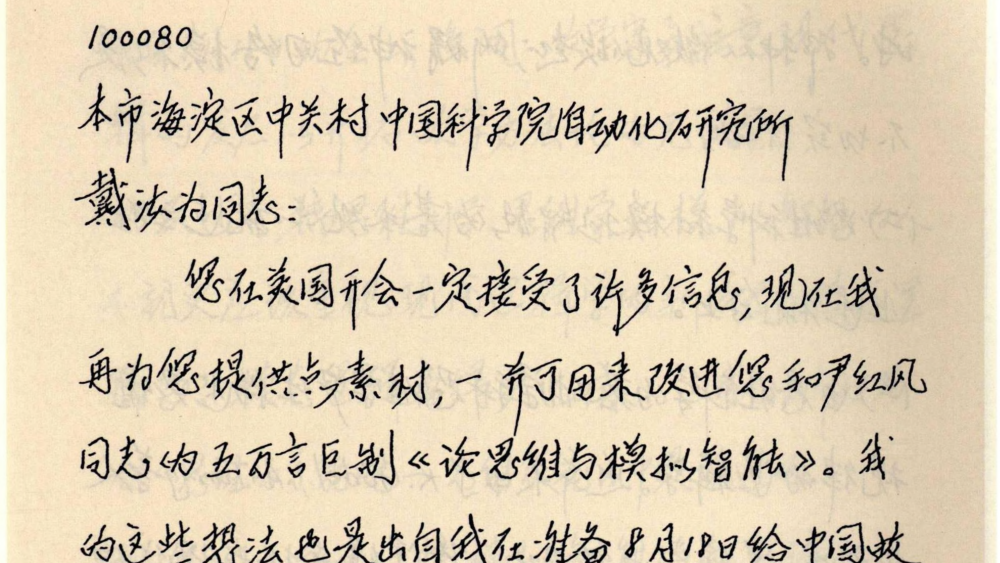 100080
本市海淀区中关村中国科学院自动化研究所
戴汝为同志：
您在美国开会一定接受了许多信息，现在我
再为您提供点素材，一并可用来改进您和尹红风
同志的五万言巨制《论思维与模拟智能》。我
的这些想法也是出自我在准备8月18日给中国故